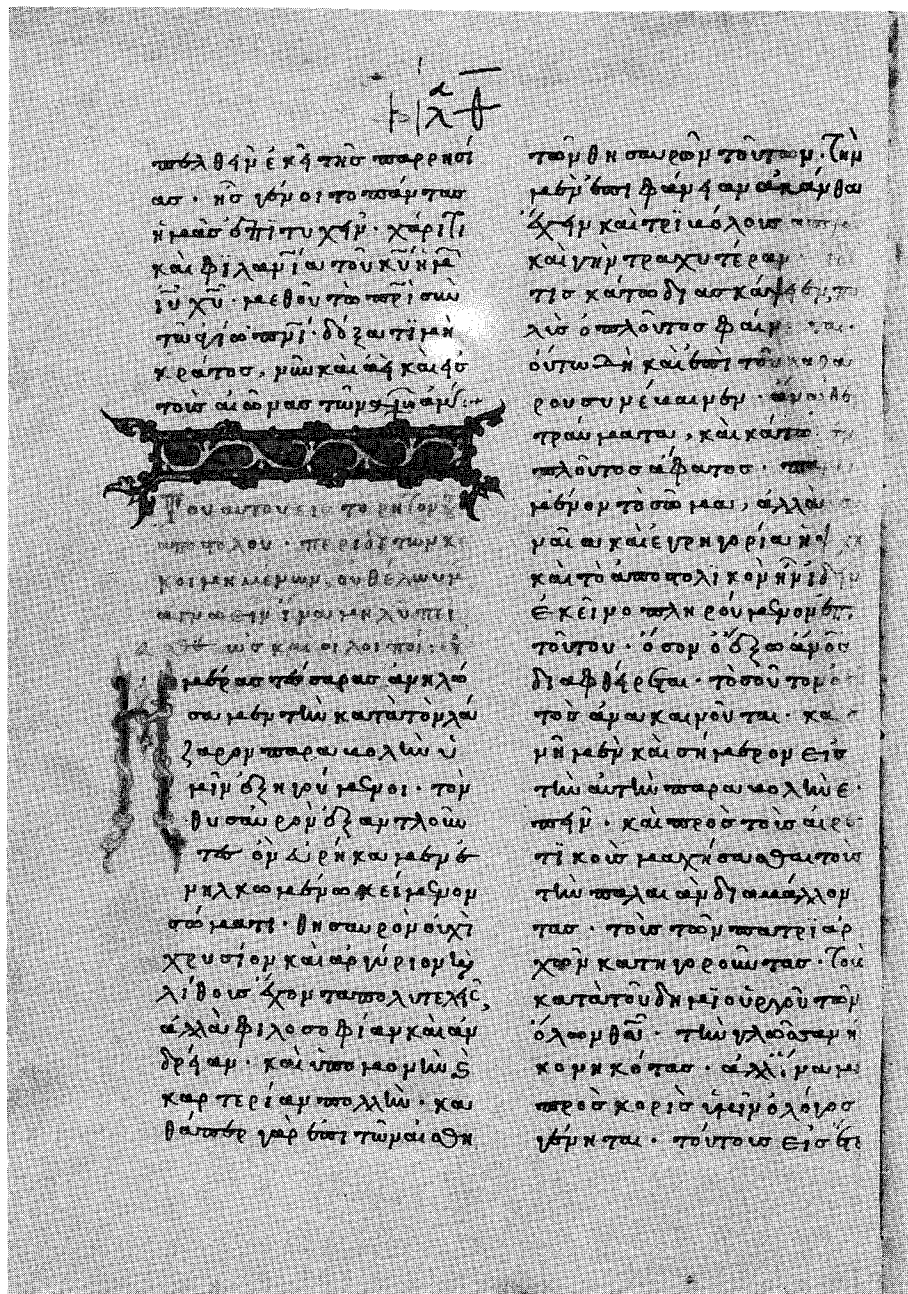 πελθεῖν ἐκεῖ τῆς παρρησί
ας· ἧς γένοιτο πάντας
ἡμᾶς ἐπιτυχεῖν· χάριτι
καὶ φιλανίᾳ τοῦ κῡ ἡμῶ
ιῡ χῡ· μεθ οὗ τῷ πρὶ σὺν
τῷ ἁγίω πνι· δόξα τιμὴ
κράτος, νῦν καὶ ἀεὶ καὶ εἰς
τοὺς αἰῶνας τῶν αἰώνων ἀμήν
Τοῦ αὐτοῦ εἰς τὸ ῥητὸν
ἀποστόλου· περὶ δὲ τῶν κε
κοιμημένων, οὐ θέλω ὑμ
ἀγνοεῖν ἵνα μὴ λυπῆ
σθε ὡς καὶ οἱ λοιποί
Ἡμέρας τέσσαρας ἀνηλώ
σαμεν τὴν κατὰ τὸν λά
ζαρον παραβολὴν ὑ
μῖν ἐξηγούμενοι· τὸν
θησαυρὸν ἐξαντλοῦν
τες ὃν εὑρήκαμεν ἐ
ν ἡλκωμένω κείμενον
σώματι· θησαυρὸν οὐχὶ
χρυσίον καὶ ἀργύριον καὶ
λίθους ἔχοντα πολυτελεῖς,
ἀλλὰ φιλοσοφίαν καὶ ἀν
δρείαν· καὶ ὑπομονὴν καὶ
καρτερίαν πολλήν· κα
θάπερ γὰρ ἐπὶ τῶν αἰσθη
τῶν θησαυρῶν τούτων· τὴν
μὲν ἐπιφάνειαν ἀκάνθας
ἔχειν καὶ τριβόλους
καὶ γῆν τραχυτέραν
τις κάτω διασκάψει, πο
λὺς ὁ πλοῦτος φαίν
οὕτω δὴ καὶ ἐπὶ τοῦ λαζά
ρου συμβέβηκεν· ἄνω
τραύματα, καὶ κάτω
πλοῦτος ἄφατος·
μένον τὸ σῶμα, ἀλλὰ
γενναία καὶ ἐγρηγορυῖα
καὶ τὸ ἀποστολικὸν ἦν ἰδεῖν
ἐκεῖνο πληρούμενον ἐπὶ
τούτου· ὅσον ὁ ἔξω ἄνος
διαφθείρεται· τοσοῦτον ὁ
τος ἀνακαινοῦται·
μὲν καὶ σήμερον εἰς
τὴν αὐτὴν παραβολὴν ε
πεῖν· καὶ πρὸς τοὺς αἱρε
τικοὺς μαχήσασθαι τοὺς
τὴν παλαιὰν διαβάλλον
τας· τοὺς τῶν πατριαρ
χῶν κατηγοροῦντας· τοὺς
κατὰ τοῦ δημιουργοῦ τῶν
ὅλων θῡ· τὴν γλῶσσαν ἠ
κονηκότας· ἀλλ ἵνα μὴ
προσκορὴς ὑμῖν ὁ λόγος
γένηται· τούτους εἰς ἑτέ